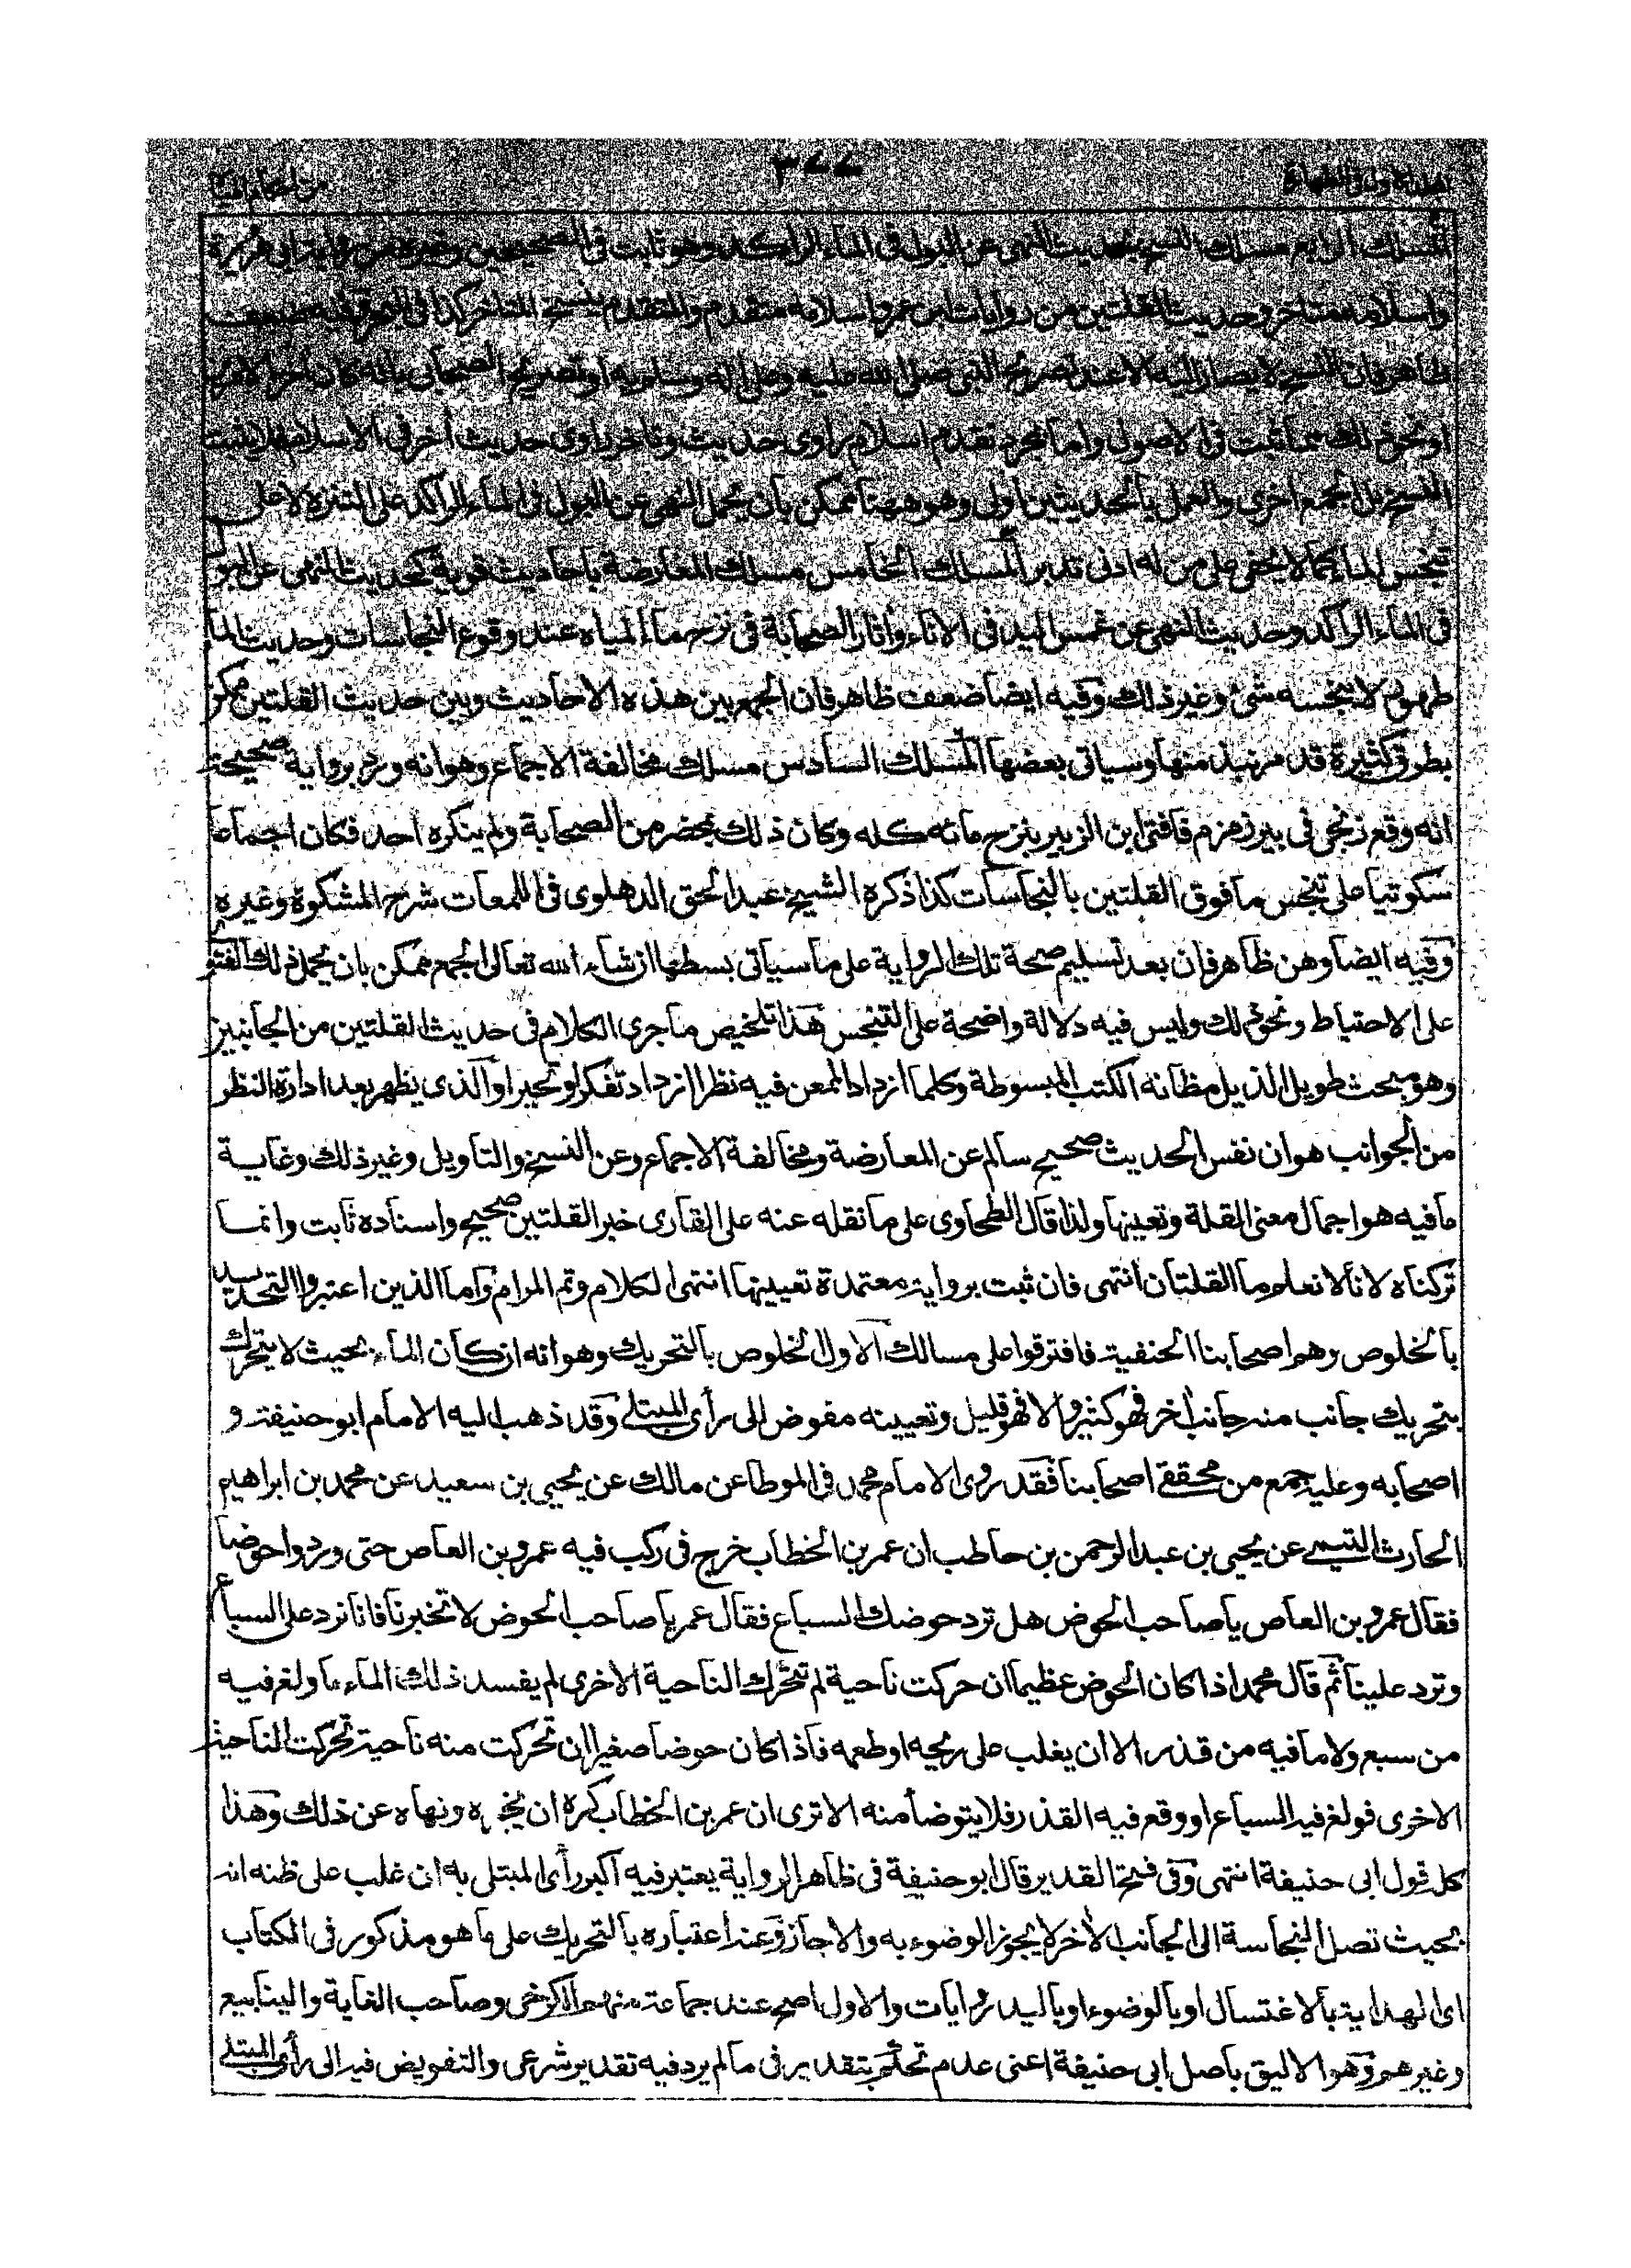 ٣٧٧
المسلك الرابع مسلك النسخ بحديث النهى عن البول فى الماء الراكد وهو ثابت فى الصحيحين وغيره من رواية ابى هريرة
واسلامه متاخر وحديث القلتين من روايات ابن عمر واسلامه متقدم والمتقدم ينسخ بالمتاخر كذا فى وفيه ضعف
ظاهر فان النسخ لا يصار اليه الا عند تصريح النبى صلى الله عليه وعلى اله وسلم به او تصريح الصحابى بانه كان اخر الامرين
او نحو ذلك مما ثبت فى الاصول واما مجرد تقدم اسلام راوى حديث وتاخر راوى حديث اخر فى الاسلام فلا يثبت
النسخ بل الجمع احرى والعمل بالحديثين اولى وهو ههنا ممكن بان يحمل النهى عن البول فى الماء الراكد على التنزه لا على
تنجس الماء كما لا يخفى على من له ادنى تدبر المسلك الخامس مسلك المعارضة باحاديث قوية كحديث النهى عن البول
فى الماء الراكد وحديث النهى عن غمس اليد فى الاناء واثار الصحابة فى نزح ماء المياه عند وقوع النجاسات وحديث الماء
طهور لا ينجسه شئ وغير ذلك وفيه ايضا ضعف ظاهر فان الجمع بين هذه الاحاديث وبين حديث القلتين ممكن
بطرق كثيرة قد مر نبذ منها وسياتى بعضها المسلك السادس مسلك مخالفة الاجماع وهو انه ورد برواية صحيحة
انه وقع زنجى فى بير زمزم فافتى ابن الزبير بنزح مائه كله وكان ذلك بمحضر من الصحابة ولم ينكره احد فكان اجماعا
سكوتيا على تنجس ما فوق القلتين بالنجاسات كذا ذكره الشيخ عبد الحق الدهلوى فى اللمعات شرح المشكوة وغيره
وفيه ايضا وهن ظاهر فان بعد تسليم صحة تلك الرواية على ما سياتى بسطها ان شاء الله تعالى الجمع ممكن بان يحمل ذلك الفتوى
على الاحتياط ونحو ذلك وليس فيه دلالة واضحة على التنجس هذا تلخيص ما جرى الكلام فى حديث القلتين من الجانبين
وهو مبحث طويل الذيل مظانه الكتب المبسوطة وكلما ازداد الممعن فيه نظرا ازداد تفكرا وتحيرا والذى يظهر بعد ادارة النظر
من الجوانب هو ان نفس الحديث صحيح سالم عن المعارضة ومخالفة الاجماع وعن النسخ والتاويل وغير ذلك وغاية
ما فيه هو اجمال معنى القلة وتعيينها ولذا قال الطحاوى على ما نقله عنه على القارى خبر القلتين صحيح واسناده ثابت وانما
تركناه لانا لا نعلم ما القلتان انتهى فان ثبت برواية معتمدة تعيينها انتهى الكلام وتم المرام واما الذين اعتبروا التحديد
بالخلوص وهم اصحابنا الحنفية فافترقوا على مسالك الاول الخلوص بالتحريك وهو انه ان كان الماء بحيث لا يتحرك
بتحريك جانب منه جانب اخر فهو كثير والا فهو قليل وتعيينه مفوض الى رأى المبتلے وقد ذهب اليه الامام ابو حنيفة و
اصحابه وعليه جمع من محققے اصحابنا فقد روى الامام محمد فى الموطا عن مالك عن يحيى بن سعيد عن محمد بن ابراهيم
الحارث التيمے عن يحيى بن عبد الرحمن بن حاطب ان عمر بن الخطاب خرج فى ركب فيه عمرو بن العاص حتى وردوا حوضا
فقال عمرو بن العاص يا صاحب الحوض هل ترد حوضك السباع فقال عمر يا صاحب الحوض لا تخبرنا فانا نرد على السباع
وترد علينا ثم قال محمد اذا كان الحوض عظيما ان حركت ناحية لم تتحرك الناحية الاخرى لم يفسد ذلك الماء ما ولغ فيه
من سبع ولا ما فيه من قذر الا ان يغلب على ريحه او طعمه فاذا كان حوضا صغيرا ان تحركت منه ناحية تحركت الناحية
الاخرى فولغ فيه السباع او وقع فيه القذر فلا يتوضا منه الا ترى ان عمر بن الخطاب كره ان يخبره ونهاه عن ذلك وهذا
كله قول ابى حنيفة انتهى وفى فتح القدير قال ابو حنيفة فى ظاهر الرواية يعتبر فيه اكبر رأى المبتلى به ان غلب على ظنه انه
بحيث تصل النجاسة الى الجانب الاخر لا يجوز الوضوء به والا جاز وعنه اعتباره بالتحريك على ما هو مذكور فى الكتاب
اى الهداية بالاغتسال او بالوضوء او باليد روايات والاول اصح عند جماعة منهم الكرخى وصاحب الغاية والينابيع
وغيرهم وهو الاليق باصل ابى حنيفة اعنى عدم تحكم بتقدير فى ما لم يرد فيه تقدير شرعى والتفويض فيه الى رأى المبتلے